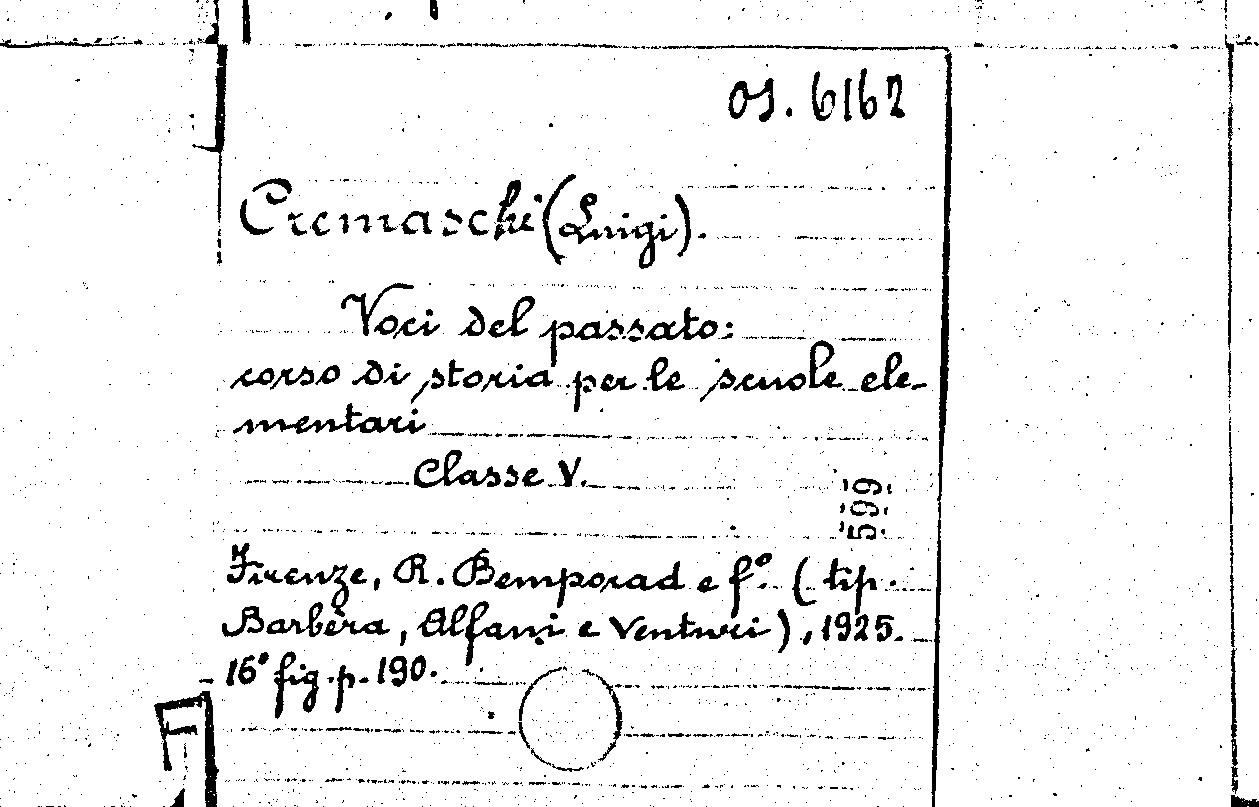 OS. 6162
Cremaschi (Luigi).
Voci del passato:
corso di storia per le scuole ele-
mentari
Classe V.
599
Firenze, R. Bemporad e f°. (tip.
Barbèra, Alfani e Venturi), 1925.
16° fig. p. 190.